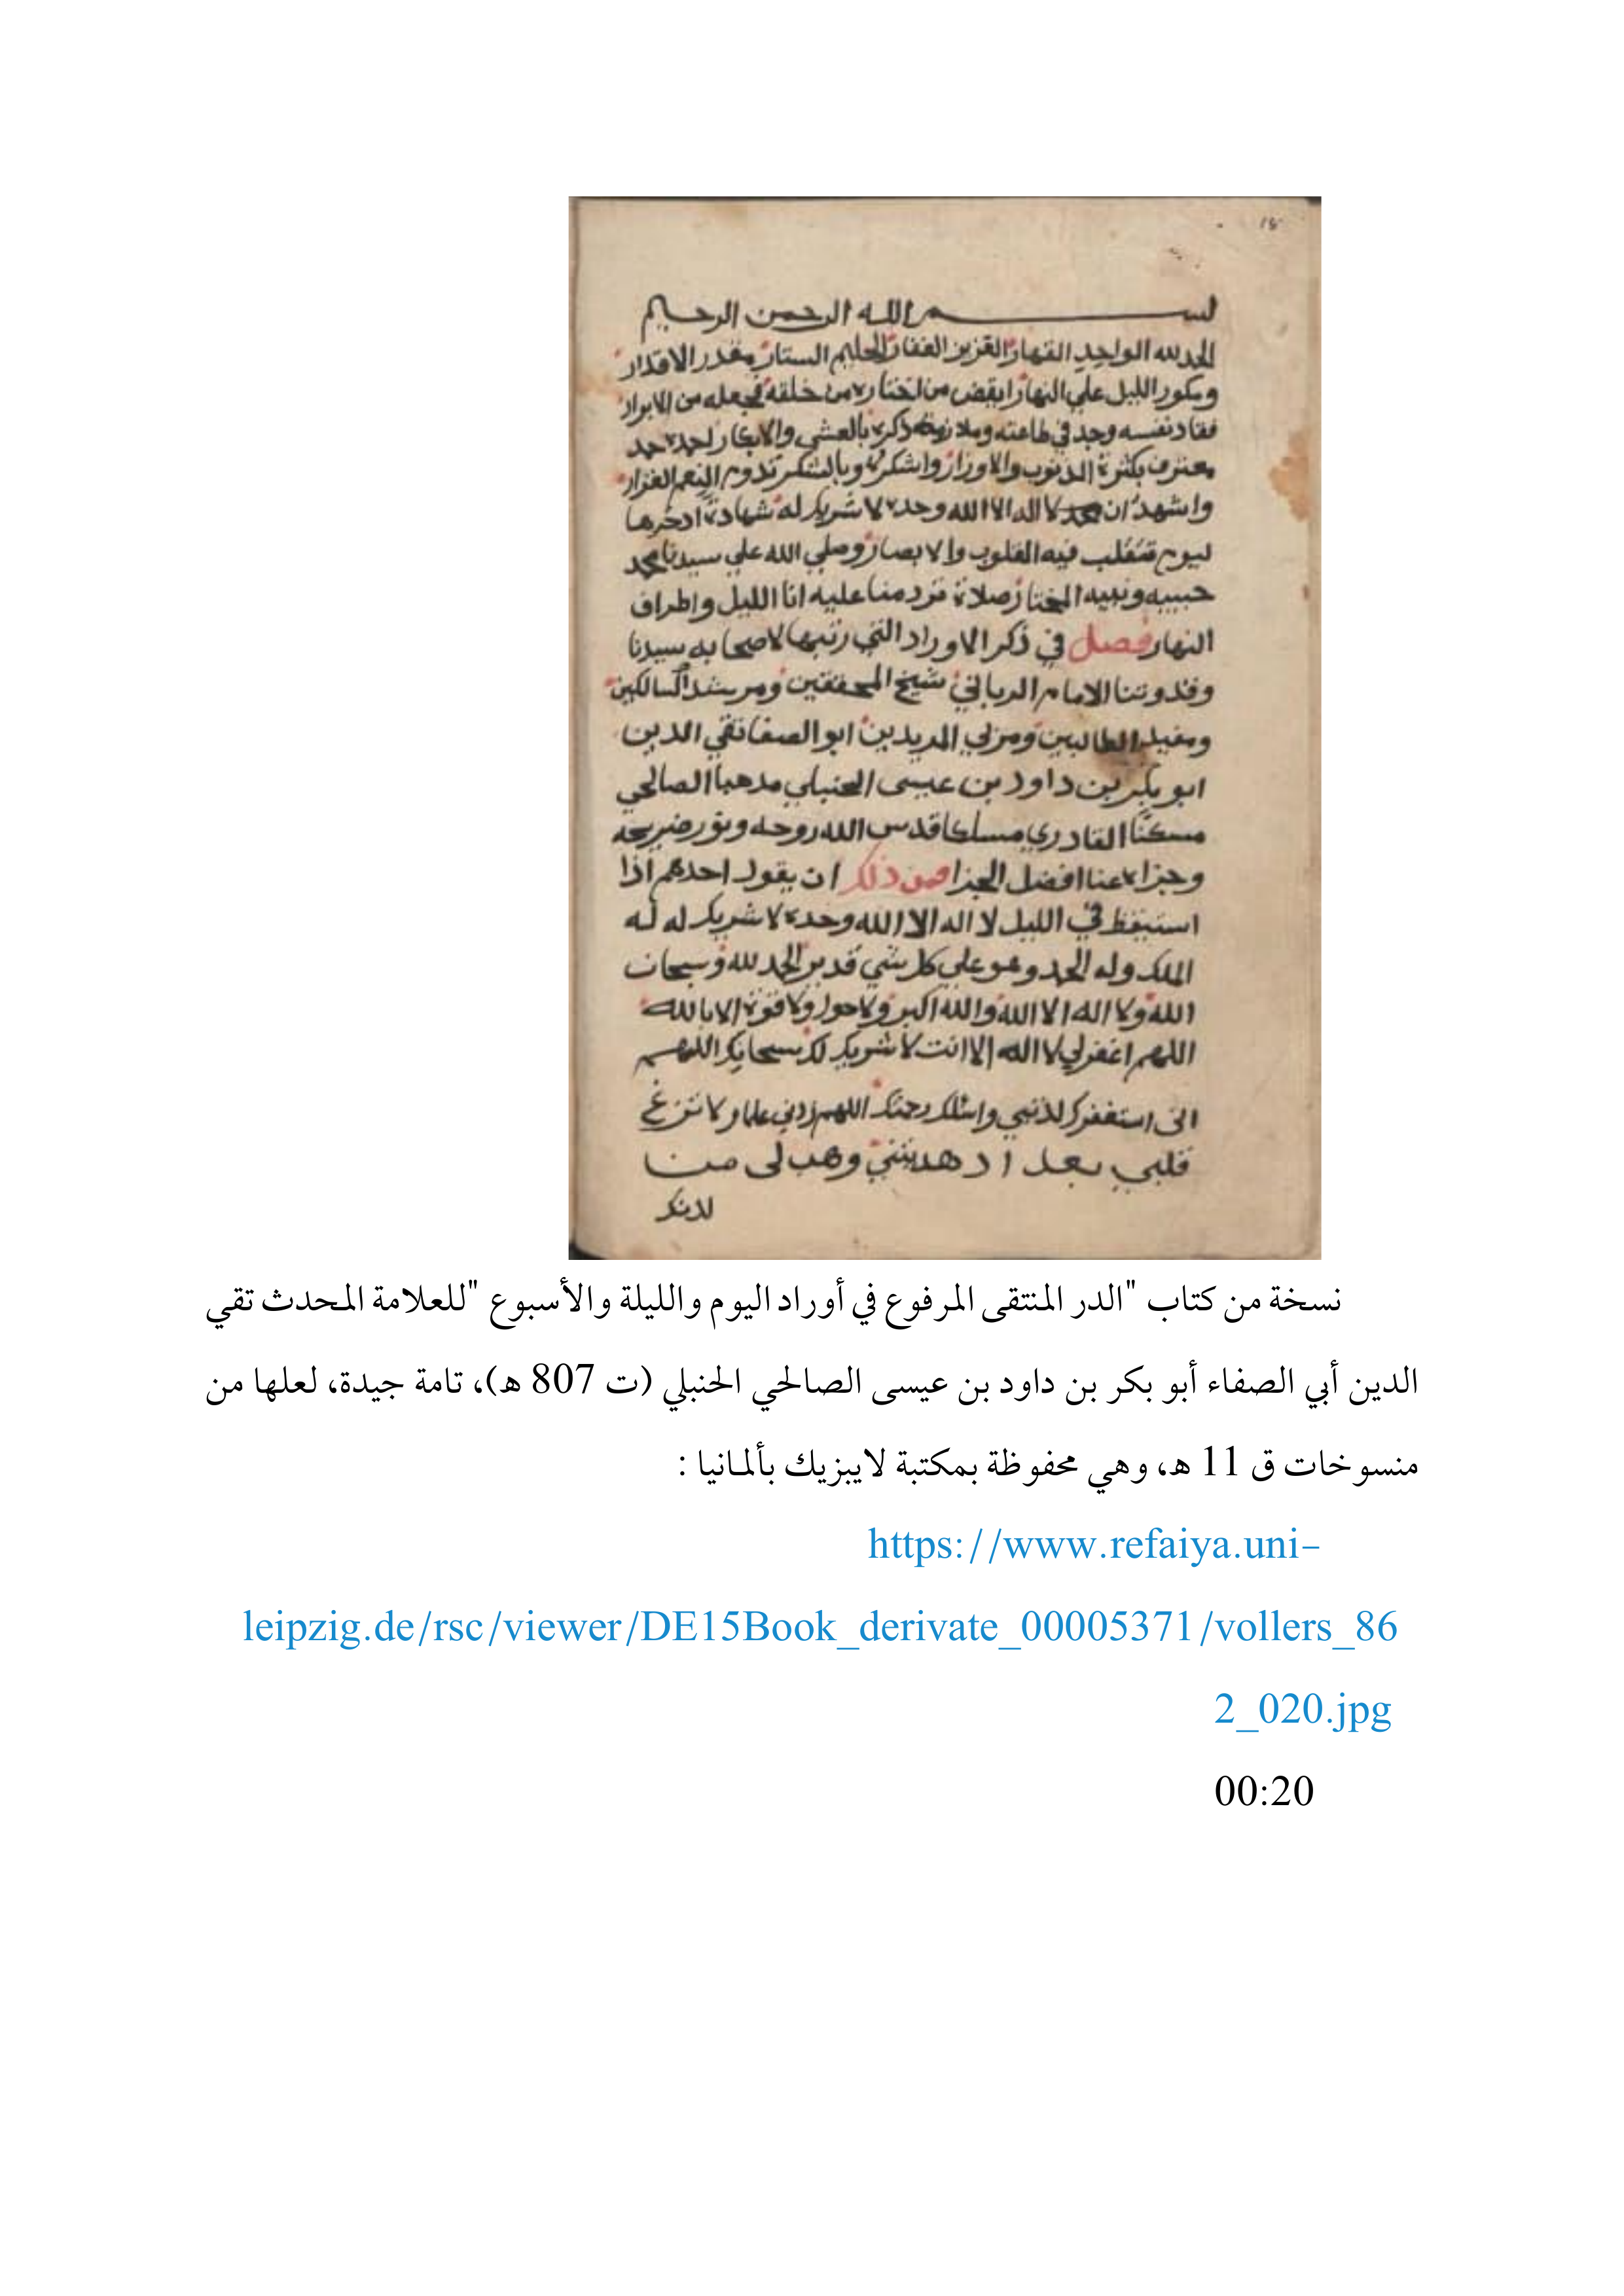 ١٥
بسم الله الرحمن الرحيم
الحمد لله الواحد القهار العزيز الغفار الحليم الستار مقدر الاقدار
ومكور الليل علي النهار ايقض من اختاره من خلقه فجعله من الابرار
فقاد نفسه وجد في طاعته وملازمة ذكره بالعشي والابكار احمده حمد
معترف بكثرة الذنوب والاوزار واشكره وبالشكر تدوم النعم الغزار
واشهد ان لا اله الا الله وحده لا شريك له شهادة ادخرها
ليوم تتقلب فيه القلوب والابصار وصلي الله علي سيدنا محمد
حبيبه ونبيه المختار صلاة ترد منا عليه انا الليل واطراف
النهار فصل في ذكر الاوراد التي رتبها لاصحابه سيدنا
وقدوتنا الامام الرباني شيخ المحققين ومرشد السالكين
ومفيد الطالبين ومربي المريدين ابو الصفا تقي الدين
ابو بكر بن داود بن عيسى الحنبلي مذهبا الصالحي
مسكنا القادري مسلكا قدس الله روحه ونور ضريحه
وجزاه عنا افضل الجزا فمن ذلك ان يقول احدهم اذا
استيقظ في الليل لا اله الا الله وحده لا شريك له له
الملك وله الحمد وهو علي كل شي قدير الحمد لله وسبحان
الله ولا اله الا الله والله اكبر ولا حول ولا قوة الا بالله
اللهم اغفر لي لا اله الا انت لا شريك لك سبحانك اللهم
اني استغفرك لذنبي واسئلك رحمتك اللهم زدني علما ولا تزغ
قلبي بعد اد هديتني وهب لي من
لدنك
نسخة من كتاب "الدر المنتقى المرفوع في أوراد اليوم والليلة والأسبوع "للعلامة المحدث تقي
الدين أبي الصفاء أبو بكر بن داود بن عيسى الصالحي الحنبلي (ت 807 ه)، تامة جيدة، لعلها من
منسوخات ق 11 ه، وهي محفوظة بمكتبة لايبزيك بألمانيا :
https://www.refaiya.uni-
leipzig.de/rsc/viewer/DE15Book_derivate_00005371/vollers_86
2_020.jpg
00:20